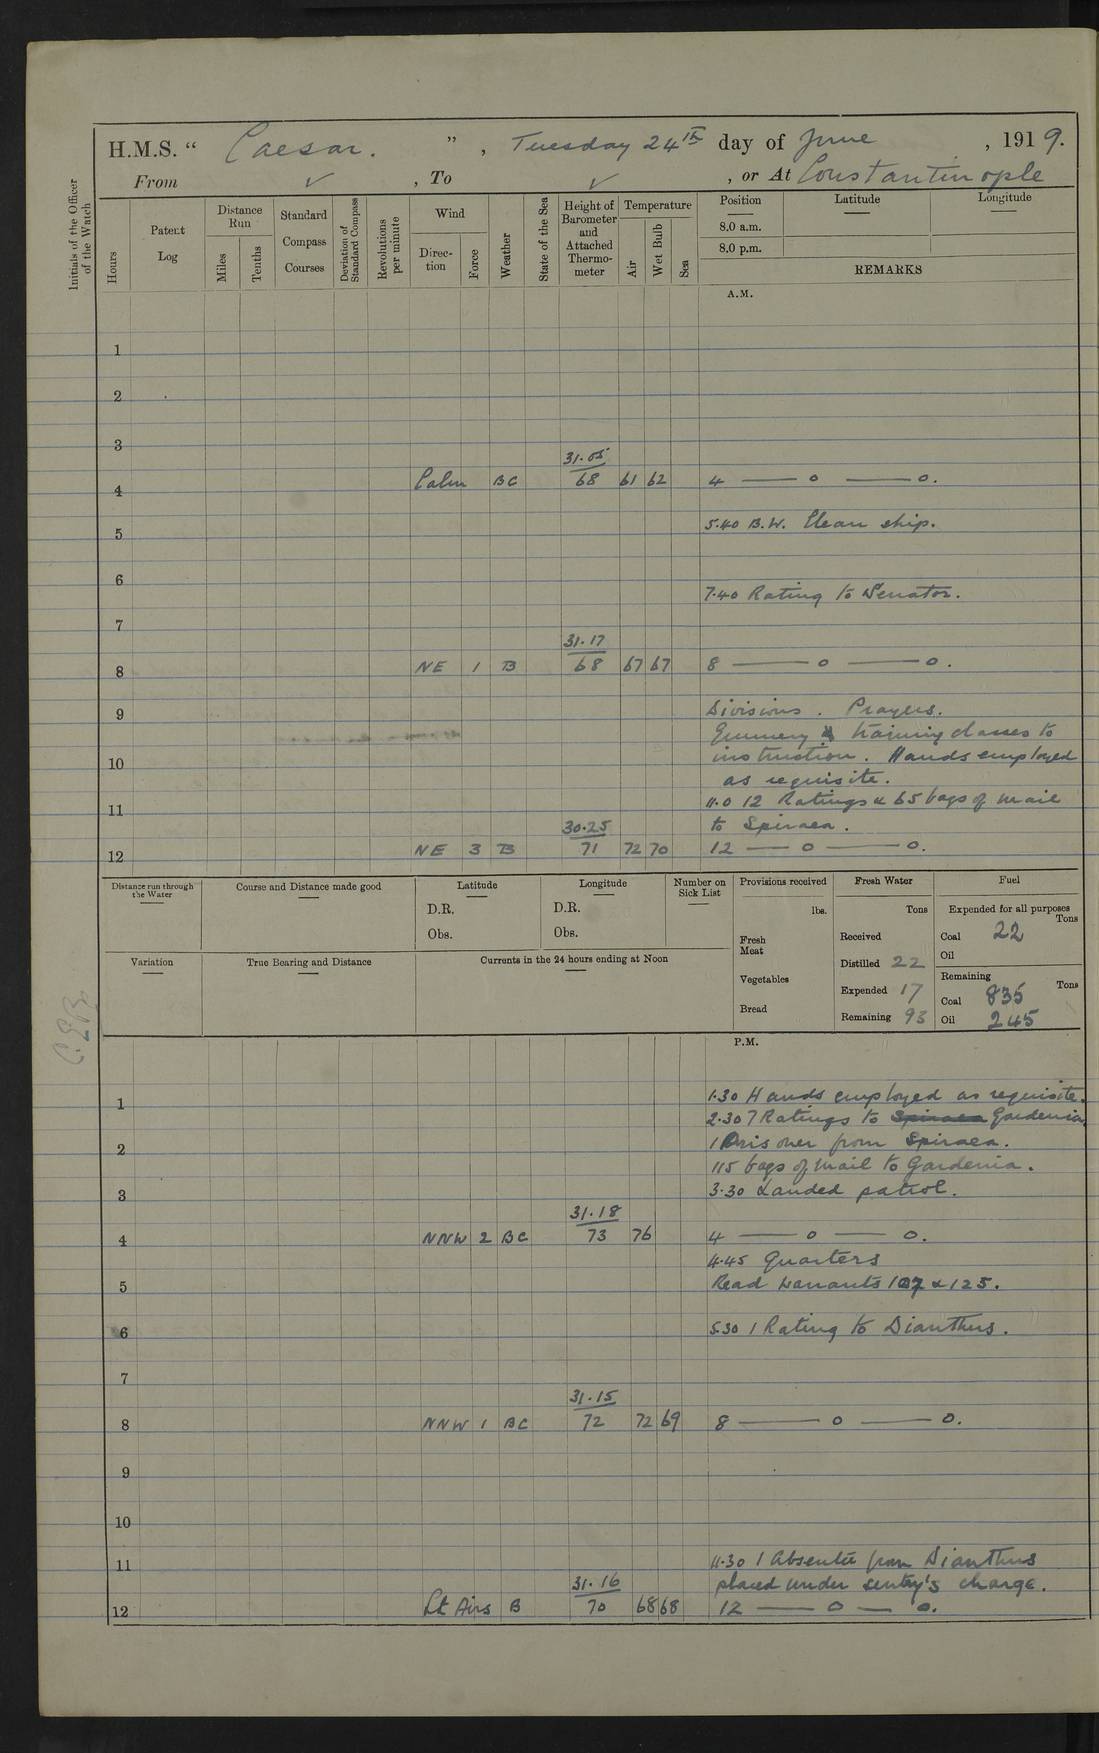 H.M.S. “ Caesar. ” , Tuesday 24th day of June , 1919.
From ✓ , To ✓ , or At Constantinople
Initials of the Officer of the Watch
Hours
Patent Log
Distance Run
Miles
Tenths
Standard Compass Courses
Deviation of Standard Compass
Revolutions per minute
Wind
Direction
Force
Weather
State of the Sea
Height of Barometer and Attached Thermometer
Temperature
Air
Wet Bulb
Sea
Position Latitude Longitude
8.0 a.m.
8.0 p.m.
REMARKS
A.M.
1
2
3
31.05
4 Calm BC 68 61 62 4 — o — o.
5.40 B.W. Clean ship.
5
6
7.40 Rating to Senator.
7
31.17
8 NE 1 B 68 67 67 8 — o — o.
9 Divisions. Prayers.
Gunnery & training classes to
10 instruction. Hands employed
as requisite.
11 11.0 12 Ratings & 65 bags of mail
30.25 to Spiraea.
12 NE 3 B 71 72 70 12 — o — o.
Distance run through the Water
Course and Distance made good
Latitude
D.R.
Obs.
Longitude
D.R.
Obs.
Number on Sick List
Provisions received
lbs.
Fresh Meat
Vegetables
Bread
Fresh Water
Tons
Received
Distilled 22
Expended 17
Remaining 93
Fuel
Expended for all purposes
Tons
Coal 22
Oil
Remaining
Tons
Coal 835
Oil 245
Variation
True Bearing and Distance
Currents in the 24 hours ending at Noon
P.M.
1 1.30 Hands employed as requisite.
2.30 7 Ratings to Spiraea Gardenia.
2 1 Prisoner from Spiraea.
115 bags of mail to Gardenia.
3 3.30 Landed patrol.
31.18
4 NNW 2 BC 73 76 4 — o — o.
4.45 Quarters
5 Read Warrants 107 & 125.
6 5.30 1 Rating to Dianthus.
7
31.15
8 NNW 1 BC 72 72 69 8 — o — o.
9
10
11 11.30 1 Absentee from Dianthus
31.16 placed under sentry's charge.
12 Lt Airs B 70 68 68 12 — o — o.